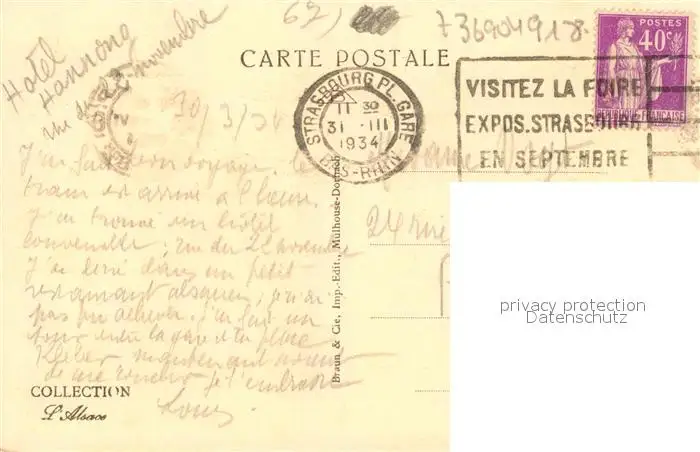 62
736904918.
Hotel
Hannong
rue du 22 novembre
CARTE POSTALE
POSTES
40c
RÉPUBLIQUE FRANÇAISE
STRASBOURG PL. GARE
11 30
31 - III
1934
BAS-RHIN
VISITEZ LA FOIRE
EXPOS. STRASBOURG
EN SEPTEMBRE
30/3/34
J'ai fait bon voyage, le
train est arrivé à l'heure.
J'ai trouvé un hôtel
convenable, rue du 22 novembre
J'ai diné dans un petit
restaurant alsacien, je n'ai
pas pu achever. J'ai fait un
tour entre la gare et la place
Kléber maintenant avant
de me coucher je t'embrasse
Louis
24 rue
Braun & Cie, Imp.-Edit., Mulhouse-Dornach
COLLECTION
L'Alsace
privacy protection
Datenschutz